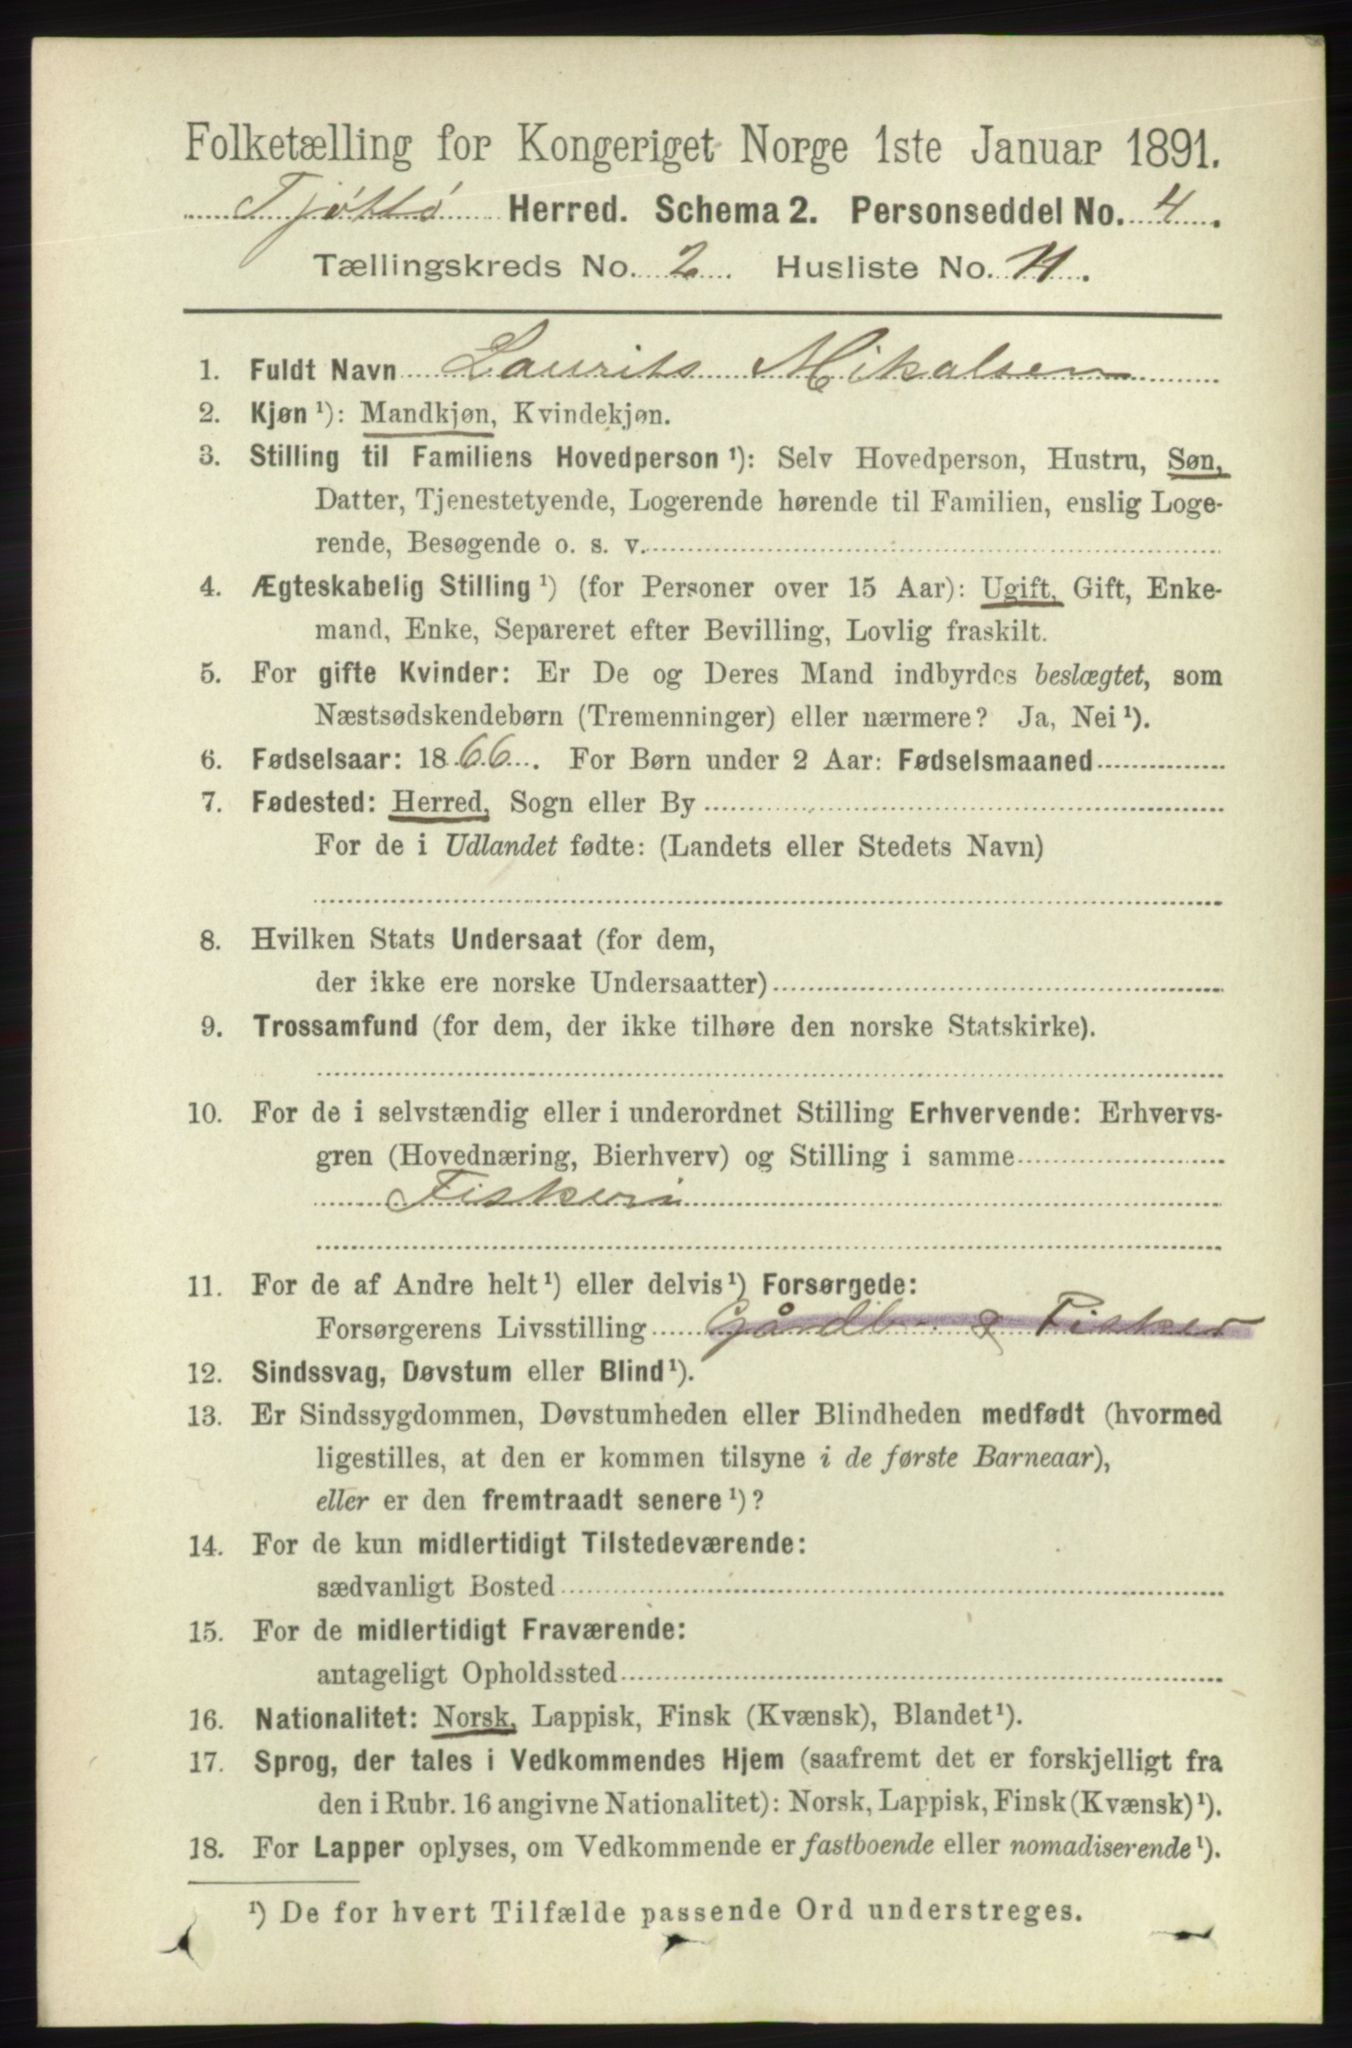 Folketælling for Kongeriget Norge 1ste Januar 1891.
Tjøttø Herred. Schema 2. Personseddel No. 4.
Tællingskreds No. 2. Husliste No. 11.
1. Fuldt Navn Laurits Mikalsen
2. Kjøn ¹): Mandkjøn, Kvindekjøn.
3. Stilling til Familiens Hovedperson ¹): Selv Hovedperson, Hustru, Søn,
Datter, Tjenestetyende, Logerende hørende til Familien, enslig Loge-
rende, Besøgende o. s. v.
4. Ægteskabelig Stilling ¹) (for Personer over 15 Aar): Ugift, Gift, Enke-
mand, Enke, Separeret efter Bevilling, Lovlig fraskilt.
5. For gifte Kvinder: Er De og Deres Mand indbyrdes beslægtet, som
Næstsødskendebørn (Tremenninger) eller nærmere? Ja, Nei ¹).
6. Fødselsaar: 1866. For Børn under 2 Aar: Fødselsmaaned
7. Fødested: Herred, Sogn eller By
For de i Udlandet fødte: (Landets eller Stedets Navn)
8. Hvilken Stats Undersaat (for dem,
der ikke ere norske Undersaatter)
9. Trossamfund (for dem, der ikke tilhøre den norske Statskirke).
10. For de i selvstændig eller i underordnet Stilling Erhvervende: Erhvervs-
gren (Hovednæring, Bierhverv) og Stilling i samme
Fiskeri
11. For de af Andre helt ¹) eller delvis ¹) Forsørgede:
Forsørgerens Livsstilling Gårdb. & Fisker
12. Sindssvag, Døvstum eller Blind ¹).
13. Er Sindssygdommen, Døvstumheden eller Blindheden medfødt (hvormed
ligestilles, at den er kommen tilsyne i de første Barneaar),
eller er den fremtraadt senere ¹)?
14. For de kun midlertidigt Tilstedeværende:
sædvanligt Bosted
15. For de midlertidigt Fraværende:
antageligt Opholdssted
16. Nationalitet: Norsk, Lappisk, Finsk (Kvænsk), Blandet ¹).
17. Sprog, der tales i Vedkommendes Hjem (saafremt det er forskjelligt fra
den i Rubr. 16 angivne Nationalitet): Norsk, Lappisk, Finsk (Kvænsk) ¹).
18. For Lapper oplyses, om Vedkommende er fastboende eller nomadiserende ¹).
¹) De for hvert Tilfælde passende Ord understreges.